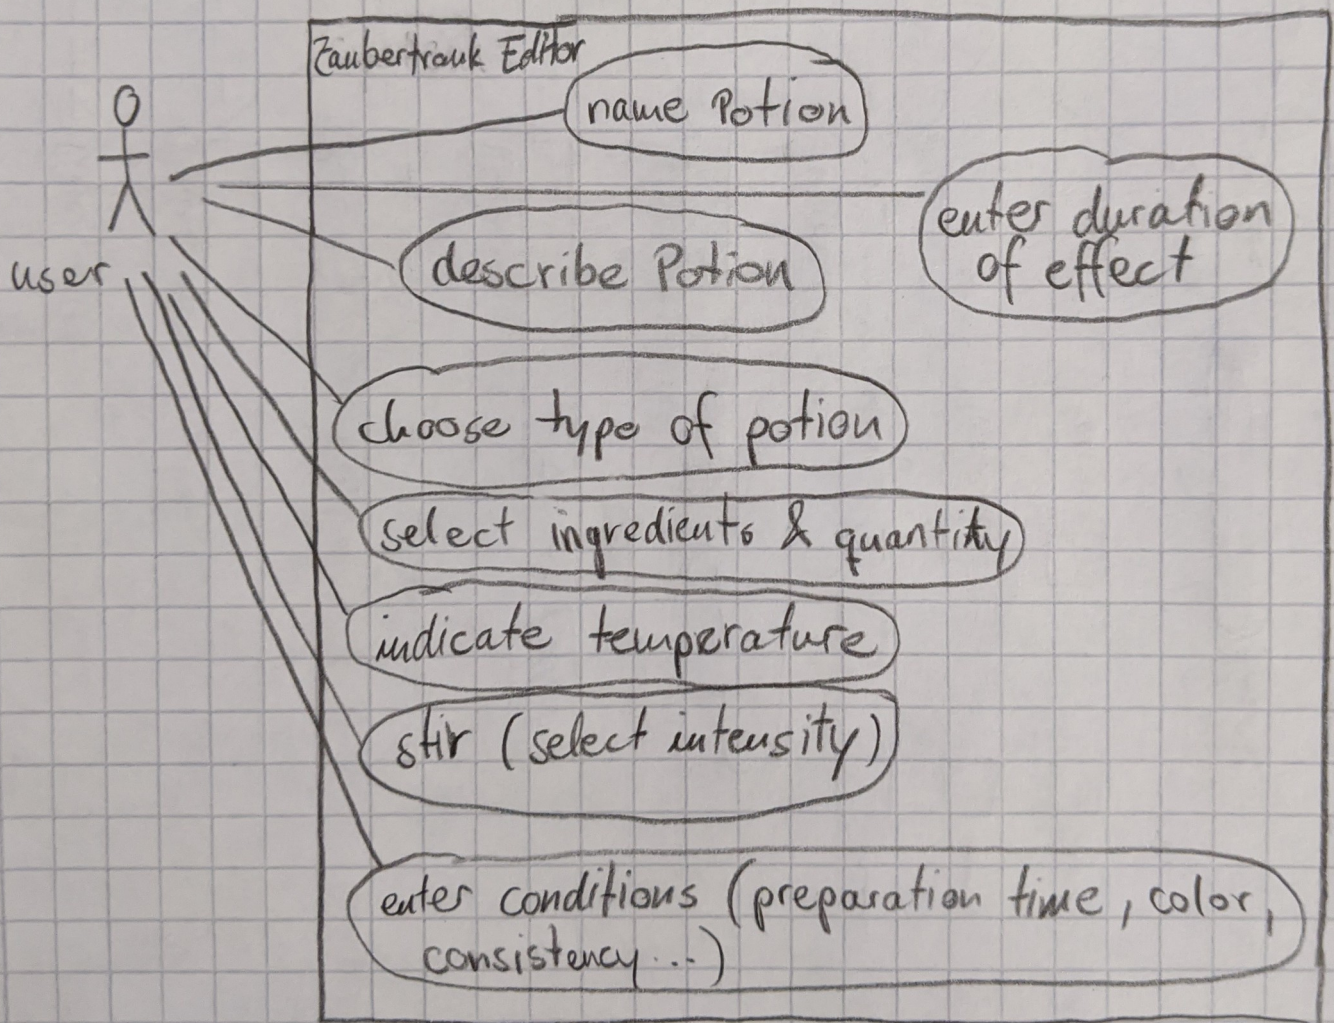 Zaubertrank Editor
name Potion
enter duration
of effect
user
describe Potion
choose type of potion
select ingredients & quantity
indicate temperature
stir (select intensity)
enter conditions (preparation time, color,
consistency...)